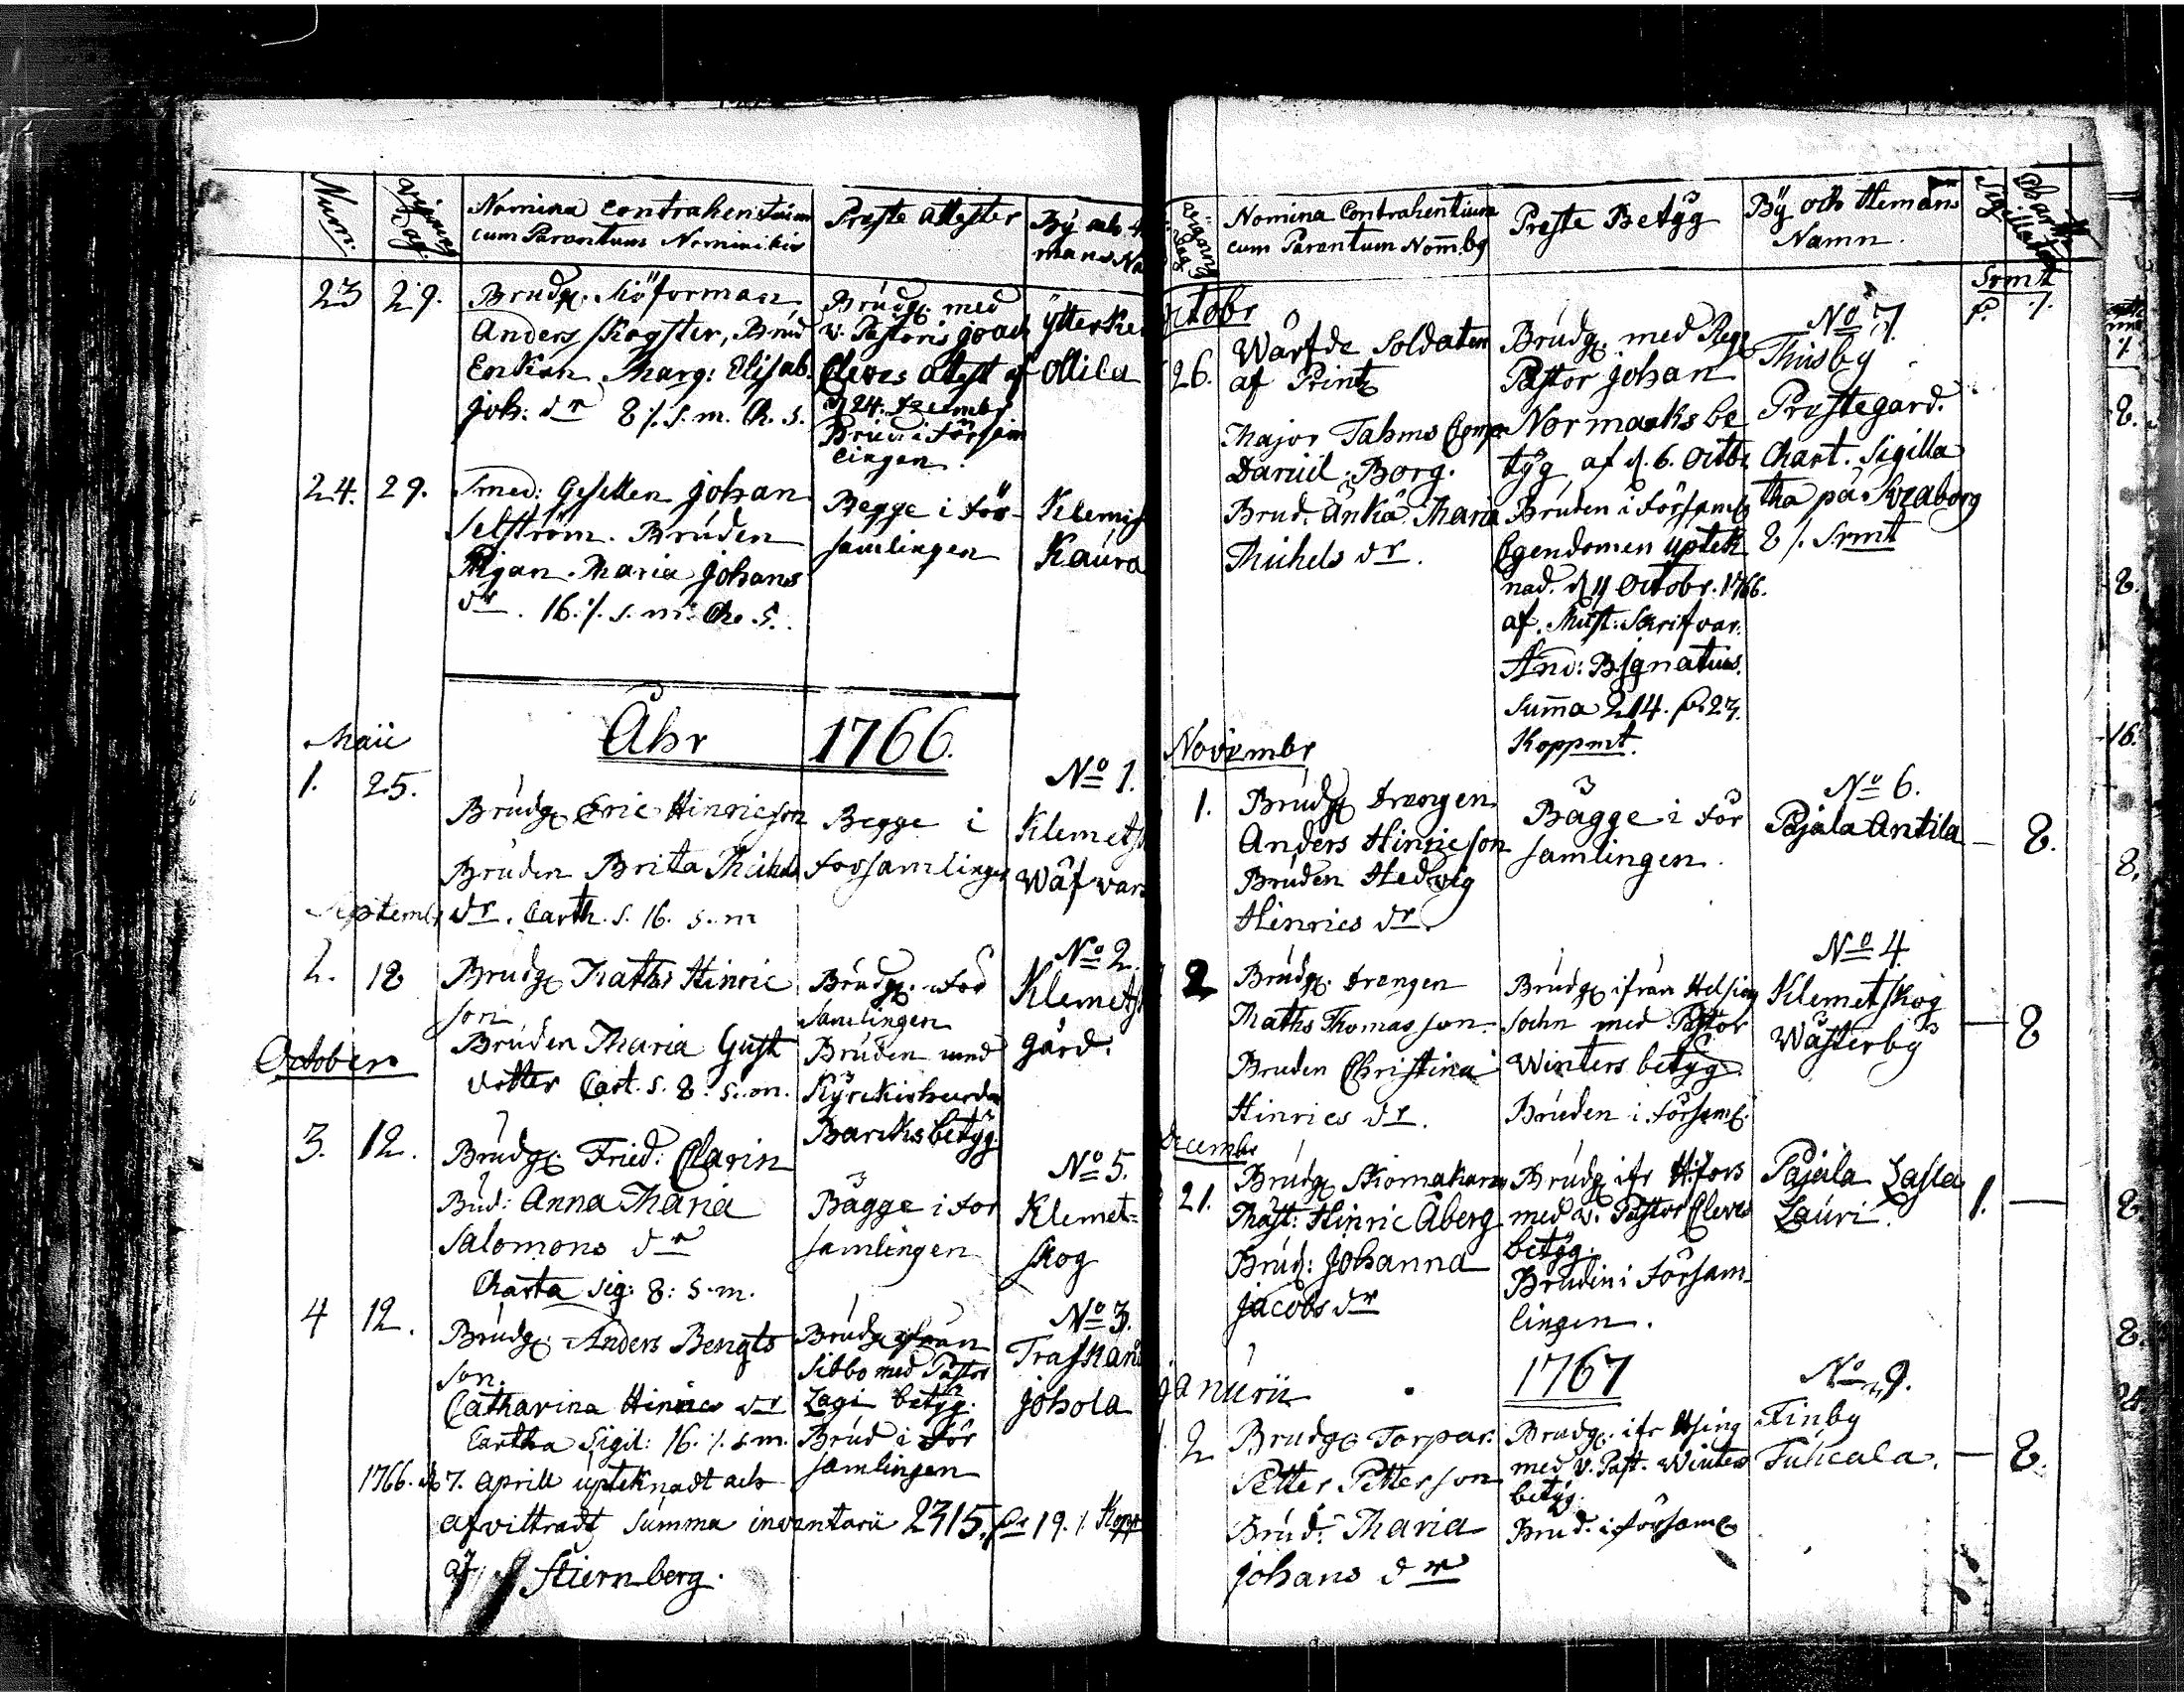 Num.
Nomina contrahentium
cum Parentum Nominibus
Preste attester
By och
mans Na
23 29.
Brudg. Siöforman
Anders Skogster, Brud
Enkan Marg: Elisab.
Joh: dr 8 /. s. m. Ch. s.
Brudg. med
v. Pastoris Joach
Cleves attest af
d 24. Decembr
Brud i försam
lingen.
Ytterke
Ollila
24. 29.
Smed: Gesellen Johan
Selström. Bruden
Pigan. Maria Johans
dr. 16. /. s. m. Ch. s.
Begge i för-
samlingen
Klemets
Kaura
Åhr 1766.
Maii
1. 25.
Brudg Eric Hinricson
Bruden Brita Michels
dr. Carth. s. 16. s. m
Begge i
forsamlingen
No 1.
Klemets
Wäfvars
Septembr
2. 18
Brudg Maths Hinric
son
Bruden Maria Gust
dotter Cart. s. 8. s. m.
Brudg. i för
samlingen
Bruden med
Kyrckioherden
Barcks betyg.
No 2.
Klemets
gård.
October
3. 12.
Brudg. Fried: Clarin
Brud: Anna Maria
Salomons dr
Charta sig: 8: s. m.
Bägge i för
samlingen
No 5.
Klemet=
skog
4 12.
Brudg. Anders Bengts
son.
Catharina Hinrics dr
Cartha Sigil: 16. /. s. m.
Brudg ifrån
Sibbo med Pastor
Lagi betyg.
Brud i för
samlingen
No 3.
Träskänd
Johola
1766. d. 7. Aprill uptecknadt och
afvittradt, Summa inventarii 2315. pr 19. /. Kopp
af Stiernberg.
Nomina Contrahentium
cum Parentum Nom̄.bg
Preste Betyg
By och Hemans
Namn.
Charta
Sigillata
Srmt
Octobr
26.
Wärfde Soldaten
af Printz
Major Tahms Comp
Daniel Borg.
Brud. Änkä Maria
Michels dr.
Brudg. med Reg
Pastor Johan
Normarks be
tyg af d. 6. Octb
Bruden i Församl
Egendomen uptek
nad. d 11 Octobr. 1766.
af. Must: Skrifvar.
And: B. Ignatius.
Sum̄a 214. pr 23.
Koppmt.
No 7.
Thusby
Prestegard.
Chart. Sigilla
tha på Sveaborg
8 /. Srmt
Novembr
1.
Brudg drengen
Anders Hinricson
Bruden Hedvig
Hinrics dr.
Bägge i För
samlingen.
No 6.
Pajala Antila
8.
2
Brudg. drengen
Maths Thomasson
Bruden Christina
Hinrics dr.
Brudg ifrån Helsing
sochn med Pastor
Winters betyg.
Bruden i Församl.
No 4.
Klemetskog
Wästerby
8
Decembr
21.
Brudg Skomakare
Mäst: Hinric Åberg
Brud: Johanna
Jacobs dr
Brudg ifr H:fors
med v. Pastor Cleves
betyg.
Bruden i Försam
lingen.
Pajala Lasla
Lauri.
1.
Januarii
1767
2
Brudg. Torpar.
Petter Petterson
Brud: Maria
Johans dr
Brudg. ifr Hsing
med V. Past. Winters
betyg.
Brud. i församl
No 9.
Finby
Tuhcala.
8.